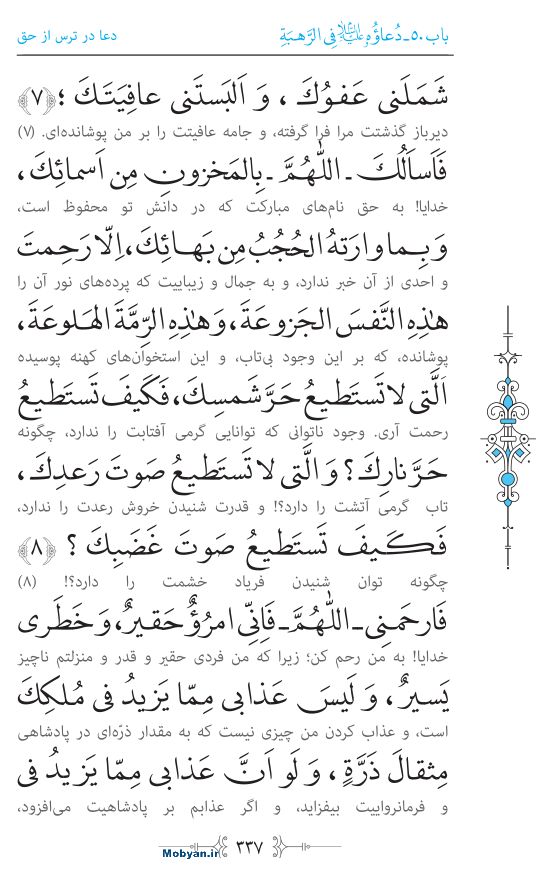 باب ۵۰ـ دُعاؤُهُ عليه‌السلام فِی الرَّهبَةِ
دعا در ترس از حق
شَمَلَنی عَفوُكَ ، وَ اَلبَستَنی عافِیَتَكَ ؛ ﴿۷﴾
دیرباز گذشتت مرا فرا گرفته، و جامه عافیتت را بر من پوشانده‌ای. (۷)
فَاَساَلُكَ ـ اَللّٰهُمَّ ـ بِالمَخزونِ مِن اَسمائِكَ ،
خدایا! به حق نام‌های مبارکت که در دانش تو محفوظ است،
وَ بِما وارَتهُ الحُجُبُ مِن بَهائِكَ، اِلّا رَحِمتَ
و احدی از آن خبر ندارد، و به جمال و زیباییت که پرده‌های نور آن را
هٰذِهِ النَّفسَ الجَزوعَةَ، وَ هٰذِهِ الرِّمَّةَ الهَلوعَةَ،
پوشانده، که بر این وجود بی‌تاب، و این استخوان‌های کهنه پوسیده
اَلَّتی لا تَستَطیعُ حَرَّ شَمسِكَ، فَكَیفَ تَستَطیعُ
رحمت آری. وجود ناتوانی که توانایی گرمی آفتابت را ندارد، چگونه
حَرَّ نارِكَ؟ وَ الَّتی لا تَستَطیعُ صَوتَ رَعدِكَ،
تاب گرمی آتشت را دارد؟! و قدرت شنیدن خروش رعدت را ندارد،
فَكَیفَ تَستَطیعُ صَوتَ غَضَبِكَ ؟ ﴿۸﴾
چگونه توان شنیدن فریاد خشمت را دارد؟! (۸)
فَارحَمنی ـ اَللّٰهُمَّ ـ فَاِنِّی امرُؤٌ حَقیرٌ، وَ خَطَری
خدایا! به من رحم کن؛ زیرا که من فردی حقیر و قدر و منزلتم ناچیز
یَسیرٌ، وَ لَیسَ عَذابی مِمّا یَزیدُ فی مُلكِكَ
است، و عذاب کردن من چیزی نیست که به مقدار ذرّه‌ای در پادشاهی
مِثقالَ ذَرَّةٍ ، وَ لَو اَنَّ عَذابی مِمّا یَزیدُ فی
و فرمانرواییت بیفزاید، و اگر عذابم بر پادشاهیت می‌افزود،
۳۳۷
Mobyan.ir